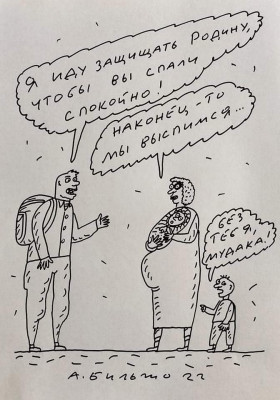 Я ИДУ ЗАЩИЩАТЬ РОДИНУ,
ЧТОБЫ ВЫ СПАЛИ
СПОКОЙНО!
НАКОНЕЦ-ТО
МЫ ВЫСПИМСЯ...
БЕЗ
ТЕБЯ,
МУДАКА!
А.БИЛЬЖО 22